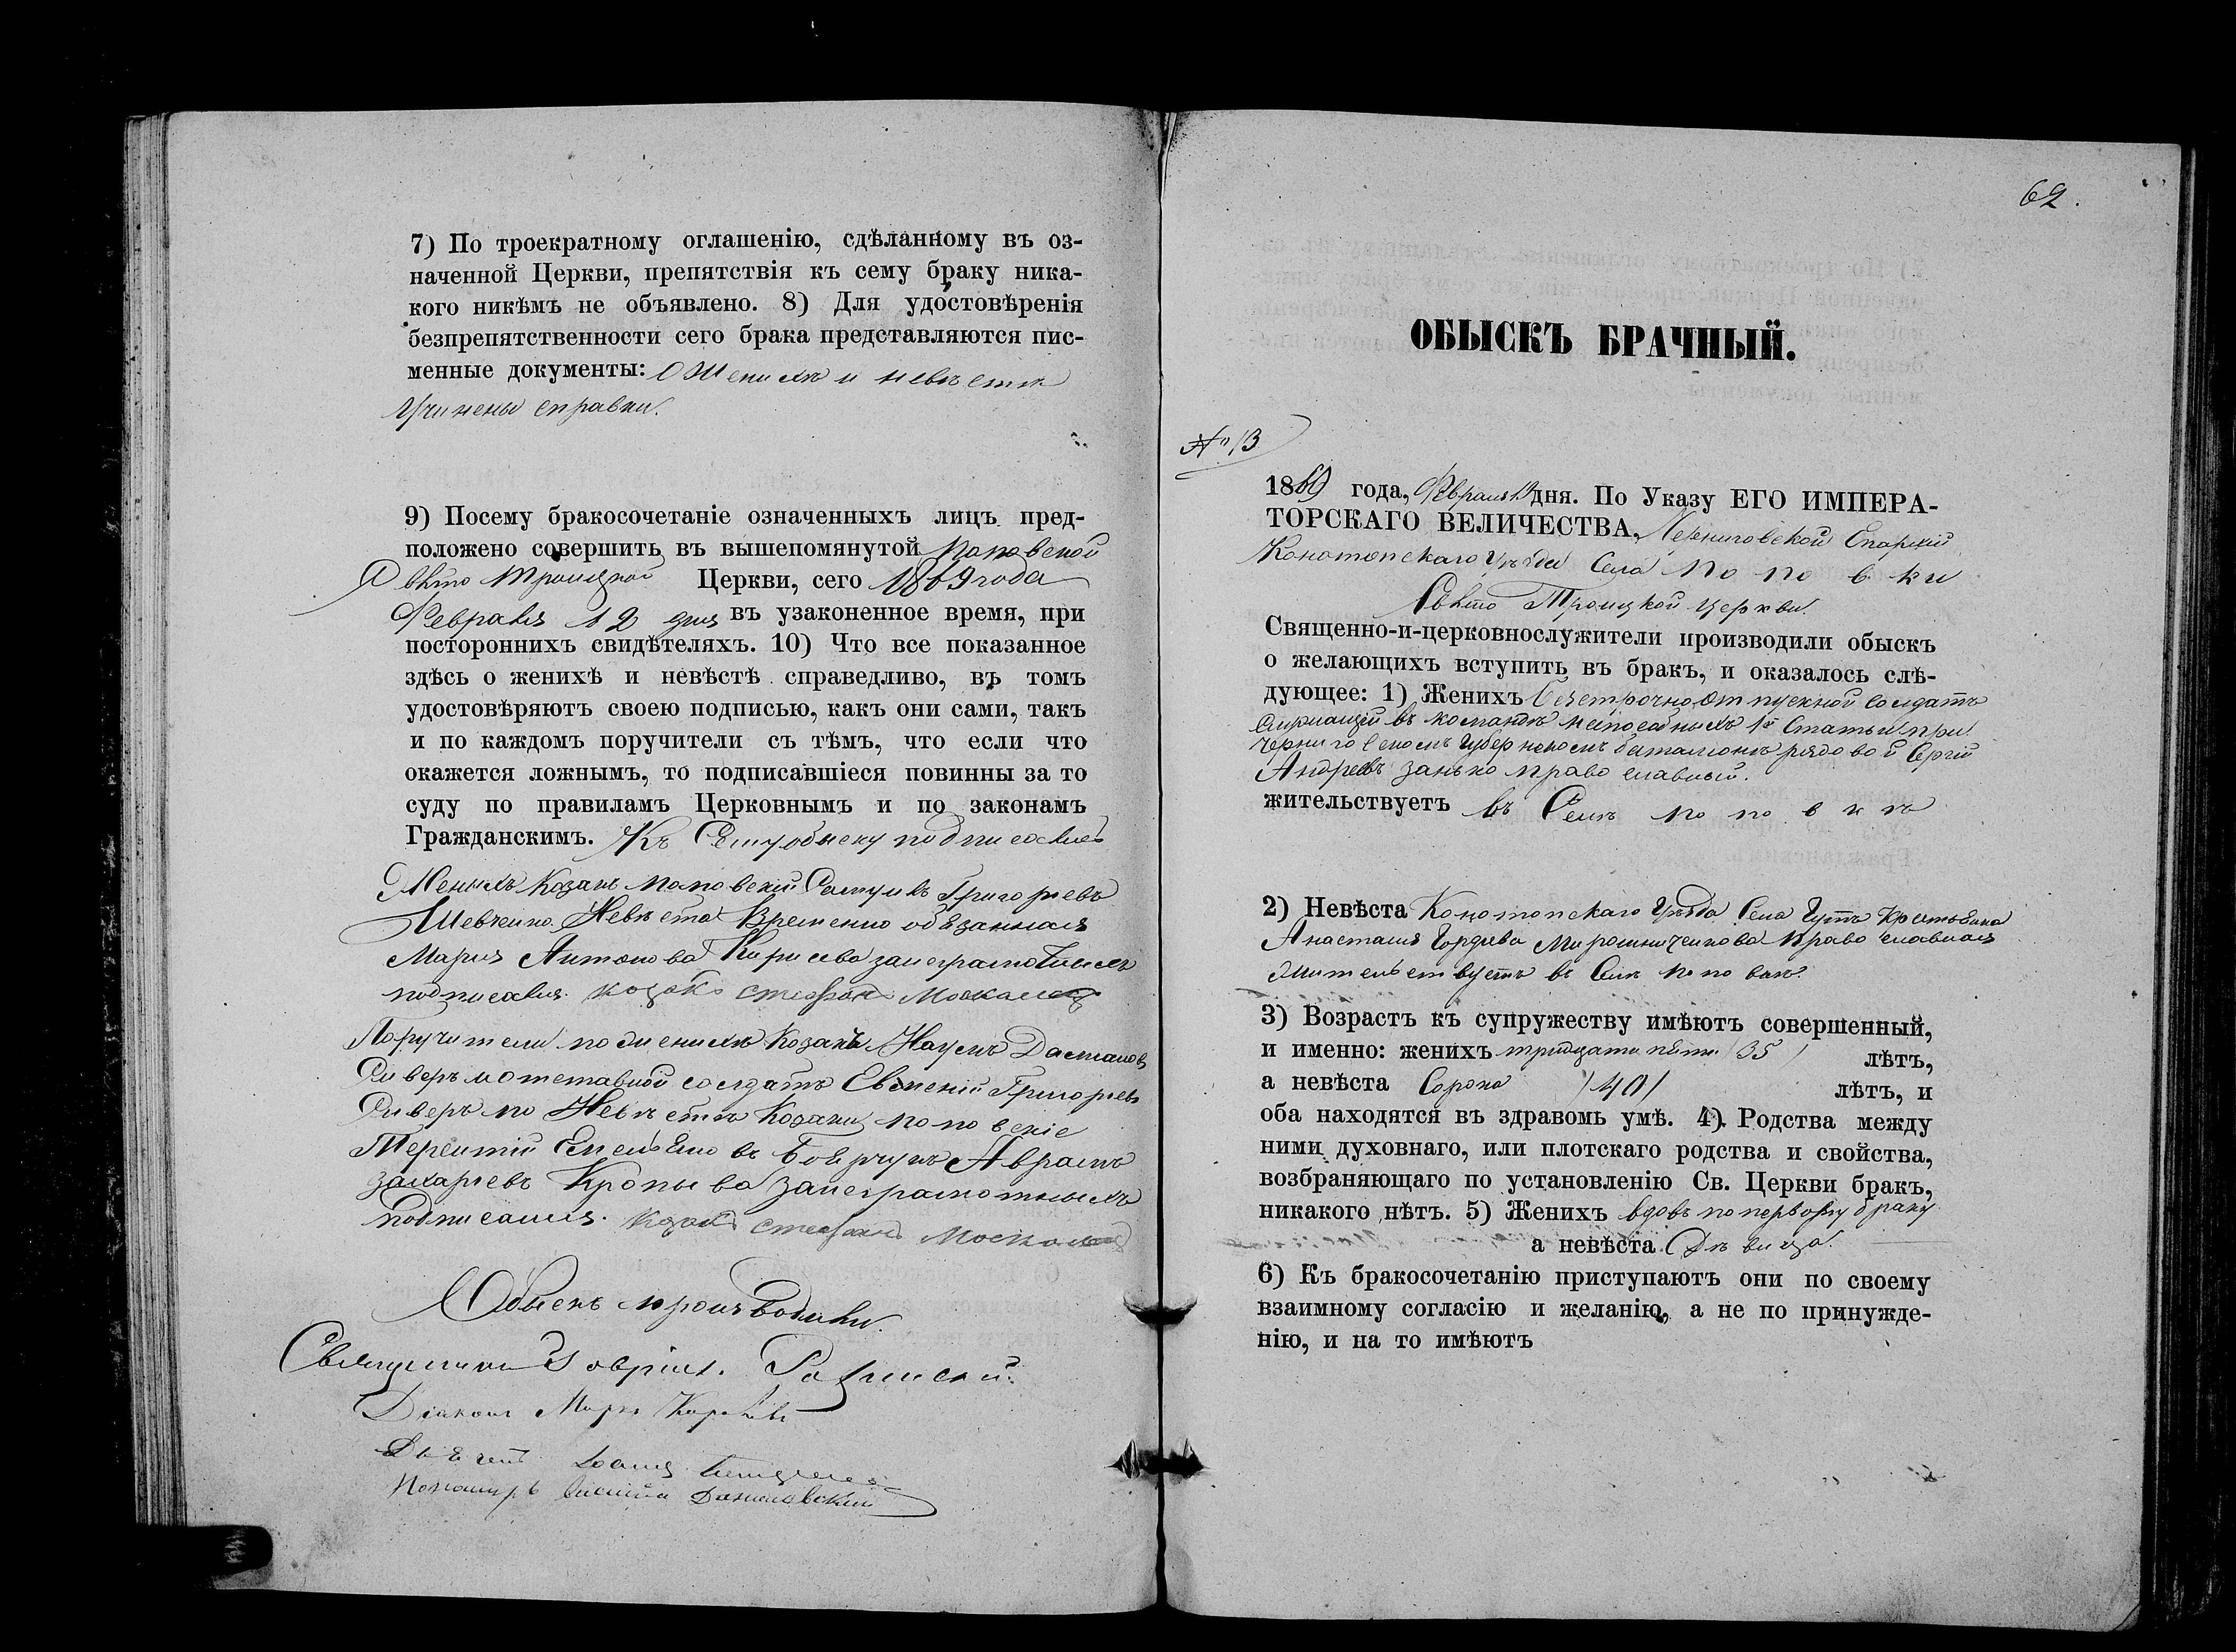 7) По троекратному оглашенію, сдѣланному въ оз-
наченной Церкви, препятствія къ сему браку ника-
кого никѣмъ не объявлено. 8) Для удостовѣренія
безпрепятственности сего брака представляются пис-
менные документы: О женихѣ и невѣстѣ
Учинены справки.
9) Посему бракосочетаніе означенныхъ лицъ пред-
положено совершить въ вышепомянутой Поповской
Свято Троицкой Церкви, сего 1869 года
Февраля 12 дня въ узаконенное время, при
постороннихъ свидѣтеляхъ. 10) Что все показанное
здѣсь о женихѣ и невѣстѣ справедливо, въ томъ
удостовѣряютъ своею подписью, какъ они сами, такъ
и по каждомъ поручители съ тѣмъ, что если что
окажется ложнымъ, то подписавшіеся повинны за то
суду по правиламъ Церковнымъ и по законамъ
Гражданскимъ. Къ Сему обыску подписались
Женихъ Козакъ Поповскій Самуилъ Григорьевъ
Шевченко. Невѣста Временно обязанная
Марія Антонова Кириева за неграмотныхъ
подписался козакъ Стефанъ
Поручители по женихѣ Козаки Наумъ
Сиверъ отставной солдатъ Евгеній Григорьевъ
Сиверъ по Невѣстѣ Козаки поповскіе
Терентій Емельяновъ Аврамъ
Захаріевъ Кропыва за неграмотныхъ
подписался. козакъ Стефанъ
Обыскъ производили.
Священникъ
Діаконъ Марко
Дьячекъ Іоаннъ
Пономарь
62.
ОБЫСКЪ БРАЧНЫЙ.
№ 13
1869 года, Февраля дня. По Указу ЕГО ИМПЕРА-
ТОРСКАГО ВЕЛИЧЕСТВА, Черниговской Епархіи
Конотопскаго Уѣзда Села Поповки
Свято Троицкой церкви.
Священно-и-церковнослужители производили обыскъ
о желающихъ вступить въ бракъ, и оказалось слѣ-
дующее: 1) Женихъ безсрочно отпускной солдатъ
служащій въ командѣ неспособныхъ 1й Статьи при
Черниговскомъ Губернскомъ баталіонѣ рядовой Сергій
Андреевъ Занько православный.
жительствуетъ въ Селѣ Поповкѣ
2) Невѣста Конотопскаго Уѣзда Села Гутъ Крестьянка
Анастасія Гордѣева Мирошниченкова Православная
Жительствуетъ въ Селѣ Поповкѣ.
3) Возрастъ къ супружеству имѣютъ совершенный,
и именно: женихъ тридцати пяти /35/ лѣтъ,
а невѣста Сорока /40/ лѣтъ, и
оба находятся въ здравомъ умѣ. 4) Родства между
ними духовнаго, или плотскаго родства и свойства,
возбраняющаго по установленію Св. Церкви бракъ,
никакого нѣтъ. 5) Женихъ вдовъ по первому браку
а невѣста Дѣвица.
6) Къ бракосочетанію приступаютъ они по своему
взаимному согласію и желанію, а не по принужде-
нію, и на то имѣютъ